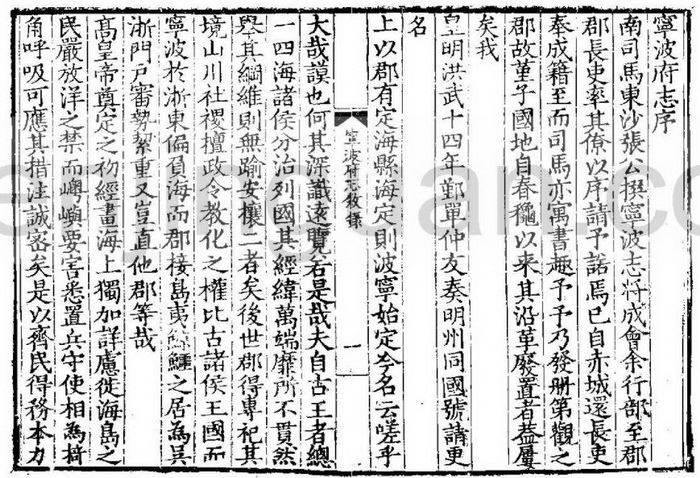 寧波府志序
南司馬東沙張公撰寧波志將成會余行部至郡
郡長吏率其僚以序請予諾焉已自赤城還長吏
奉成籍至而司馬亦寓書趣予予乃發册第觀之
郡故菫子國地自春穐以来其沿革廢置者益屢
矣我
皇明洪武十四年鄞單仲友奏明州同國號請更
名
上以郡有定海縣海定則波寧始定今名云嗟乎
寧波府志敘錄
一
大哉謨也何其深識遠覽若是哉夫自古王者總
一四海諸侯分治列國其經緯萬端靡所不貫然
舉其綱維則無踰安攘二者矣後世郡得專祀其
境山川社稷壇政令教化之權比古諸侯王國而
寧波於浙東偏負海而郡接島夷鯨之居為吳
浙門戶審勢絜重又豈直他郡等哉
高皇帝奠定之初經畫海上獨加詳慮徙海島之
民嚴放洋之禁而嶼要害悉置兵守使相為掎
角呼吸可應其措注誠密矣是以齊民得務本力